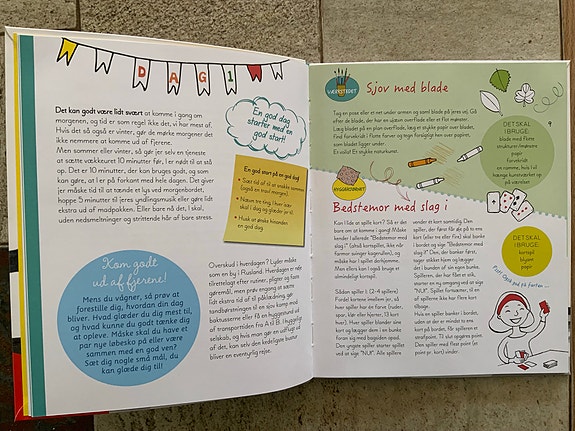 DAG 1
Det kan godt være lidt svært at komme i gang om
morgenen, og tid er som regel ikke det, vi har mest af.
Hvis det så også er vinter, gør de mørke morgener det
ikke nemmere at komme ud af fjerene.
Men sommer eller vinter, så gør jer selv en tjeneste
at sætte vækkeuret 10 minutter før, I er nødt til at stå
op. Det er 10 minutter, der kan bruges godt, og som
kan gøre, at I er på forkant med hele dagen. Det giver
jer måske tid til at tænde et lys ved morgenbordet,
hoppe 5 minutter til jeres yndlingsmusik eller gøre lidt
ekstra ud af madpakken. Eller bare nå det, I skal,
uden nedsmeltninger og strittende hår af bare stress.
En god dag
starter med en
god start!
En god start på en god dag!
Husk at ønske hinanden
en god dag.
Kom godt
ud af fjerene!
Mens du vågner, så prøv at
forestille dig, hvordan din dag
bliver. Hvad glæder du dig mest til,
og hvad kunne du godt tænke dig
at opleve. Måske skal du have et
par nye løbesko på eller være
sammen med en god ven?
Sæt dig nogle små mål, du
kan glæde dig til!
Overskud i hverdagen? Lyder måske
som en by i Rusland. Hverdagen er når
tilrettelagt efter rutiner, pligter og faste
gøremål, men prøv engang at sætte
lidt ekstra tid af til påklædning, gør
tandbørstningen til en sjov komp med
bakteriener eller få en hyggestund ud
af transporttiden fra A til B. I hyggeligt
selskab, og hvis man gør en udflugt ud
af det, kan selv den kedeligste bustur
blive en eventyrlig rejse.
VÆRKSTEDET
Sjov med blade
Tag en pose eller et net under armen og saml blade på jeres vej. Gå
efter de blade, der har en ujævn overflade eller et flot mønster.
Læg bladet på en plan overflade, læg et stykke papir over bladet,
find farvekridt i flotte farver og farv forsigtigt hen over papiret,
som bladet ligger under.
Et voila! Et stykke naturkunst.
DET SKAL
I BRUGE:
blade med flotte
strukturer/mønstre
papir
farvekridt
en ramme, hvis I vil
hænge kunstværket op
på værelset
9
HYGGEHJØRNET
Bedstemor med slag i
Kan I lide at spille kort? Så er det
bare om at komme i gang! Måske
kender I allerede "Bedstemor med
slag i" (altså kortspillet, ikke når
farmor svinger kagerullen), og
måske har I spiller derhjemme.
Men ellers kan I også bruge et
almindeligt kortspil.
Sådan spiller I: (2-4 spillere)
Fordel kortene imellem jer, så
hver spiller har en farve (ruder,
spar, klør eller hjerter, 13 kort
hver). Hver spiller blander sine
kort og lægger dem i en bunke
foran sig med bagsiden opad.
Den yngste spiller starter spillet
ved at sige "NU!". Alle spillere
vender et kort samtidig. Den
spiller, der først får øje på to ens
kort (eller tre eller fire) skal banke
i bordet og sige "Bedstemor med
slag i!". Den, der banker først,
siger stikket hjem og lægger
det i bunden af sin egen bunke.
Spilleren, der har fået et stik,
starter en ny omgang ved at sige
"NU!". Spillet fortsætter, til en
af spillerne ikke har flere kort
tilbage.
Hvis en spiller banker i bordet,
uden at der er mindst to ens
kort på bordet, får spilleren et
strafpoint. Til slut opgøres point.
Den spiller med flest point (et
point pr. kort) vinder.
DET SKAL
I BRUGE:
kortspil
blyant
papir